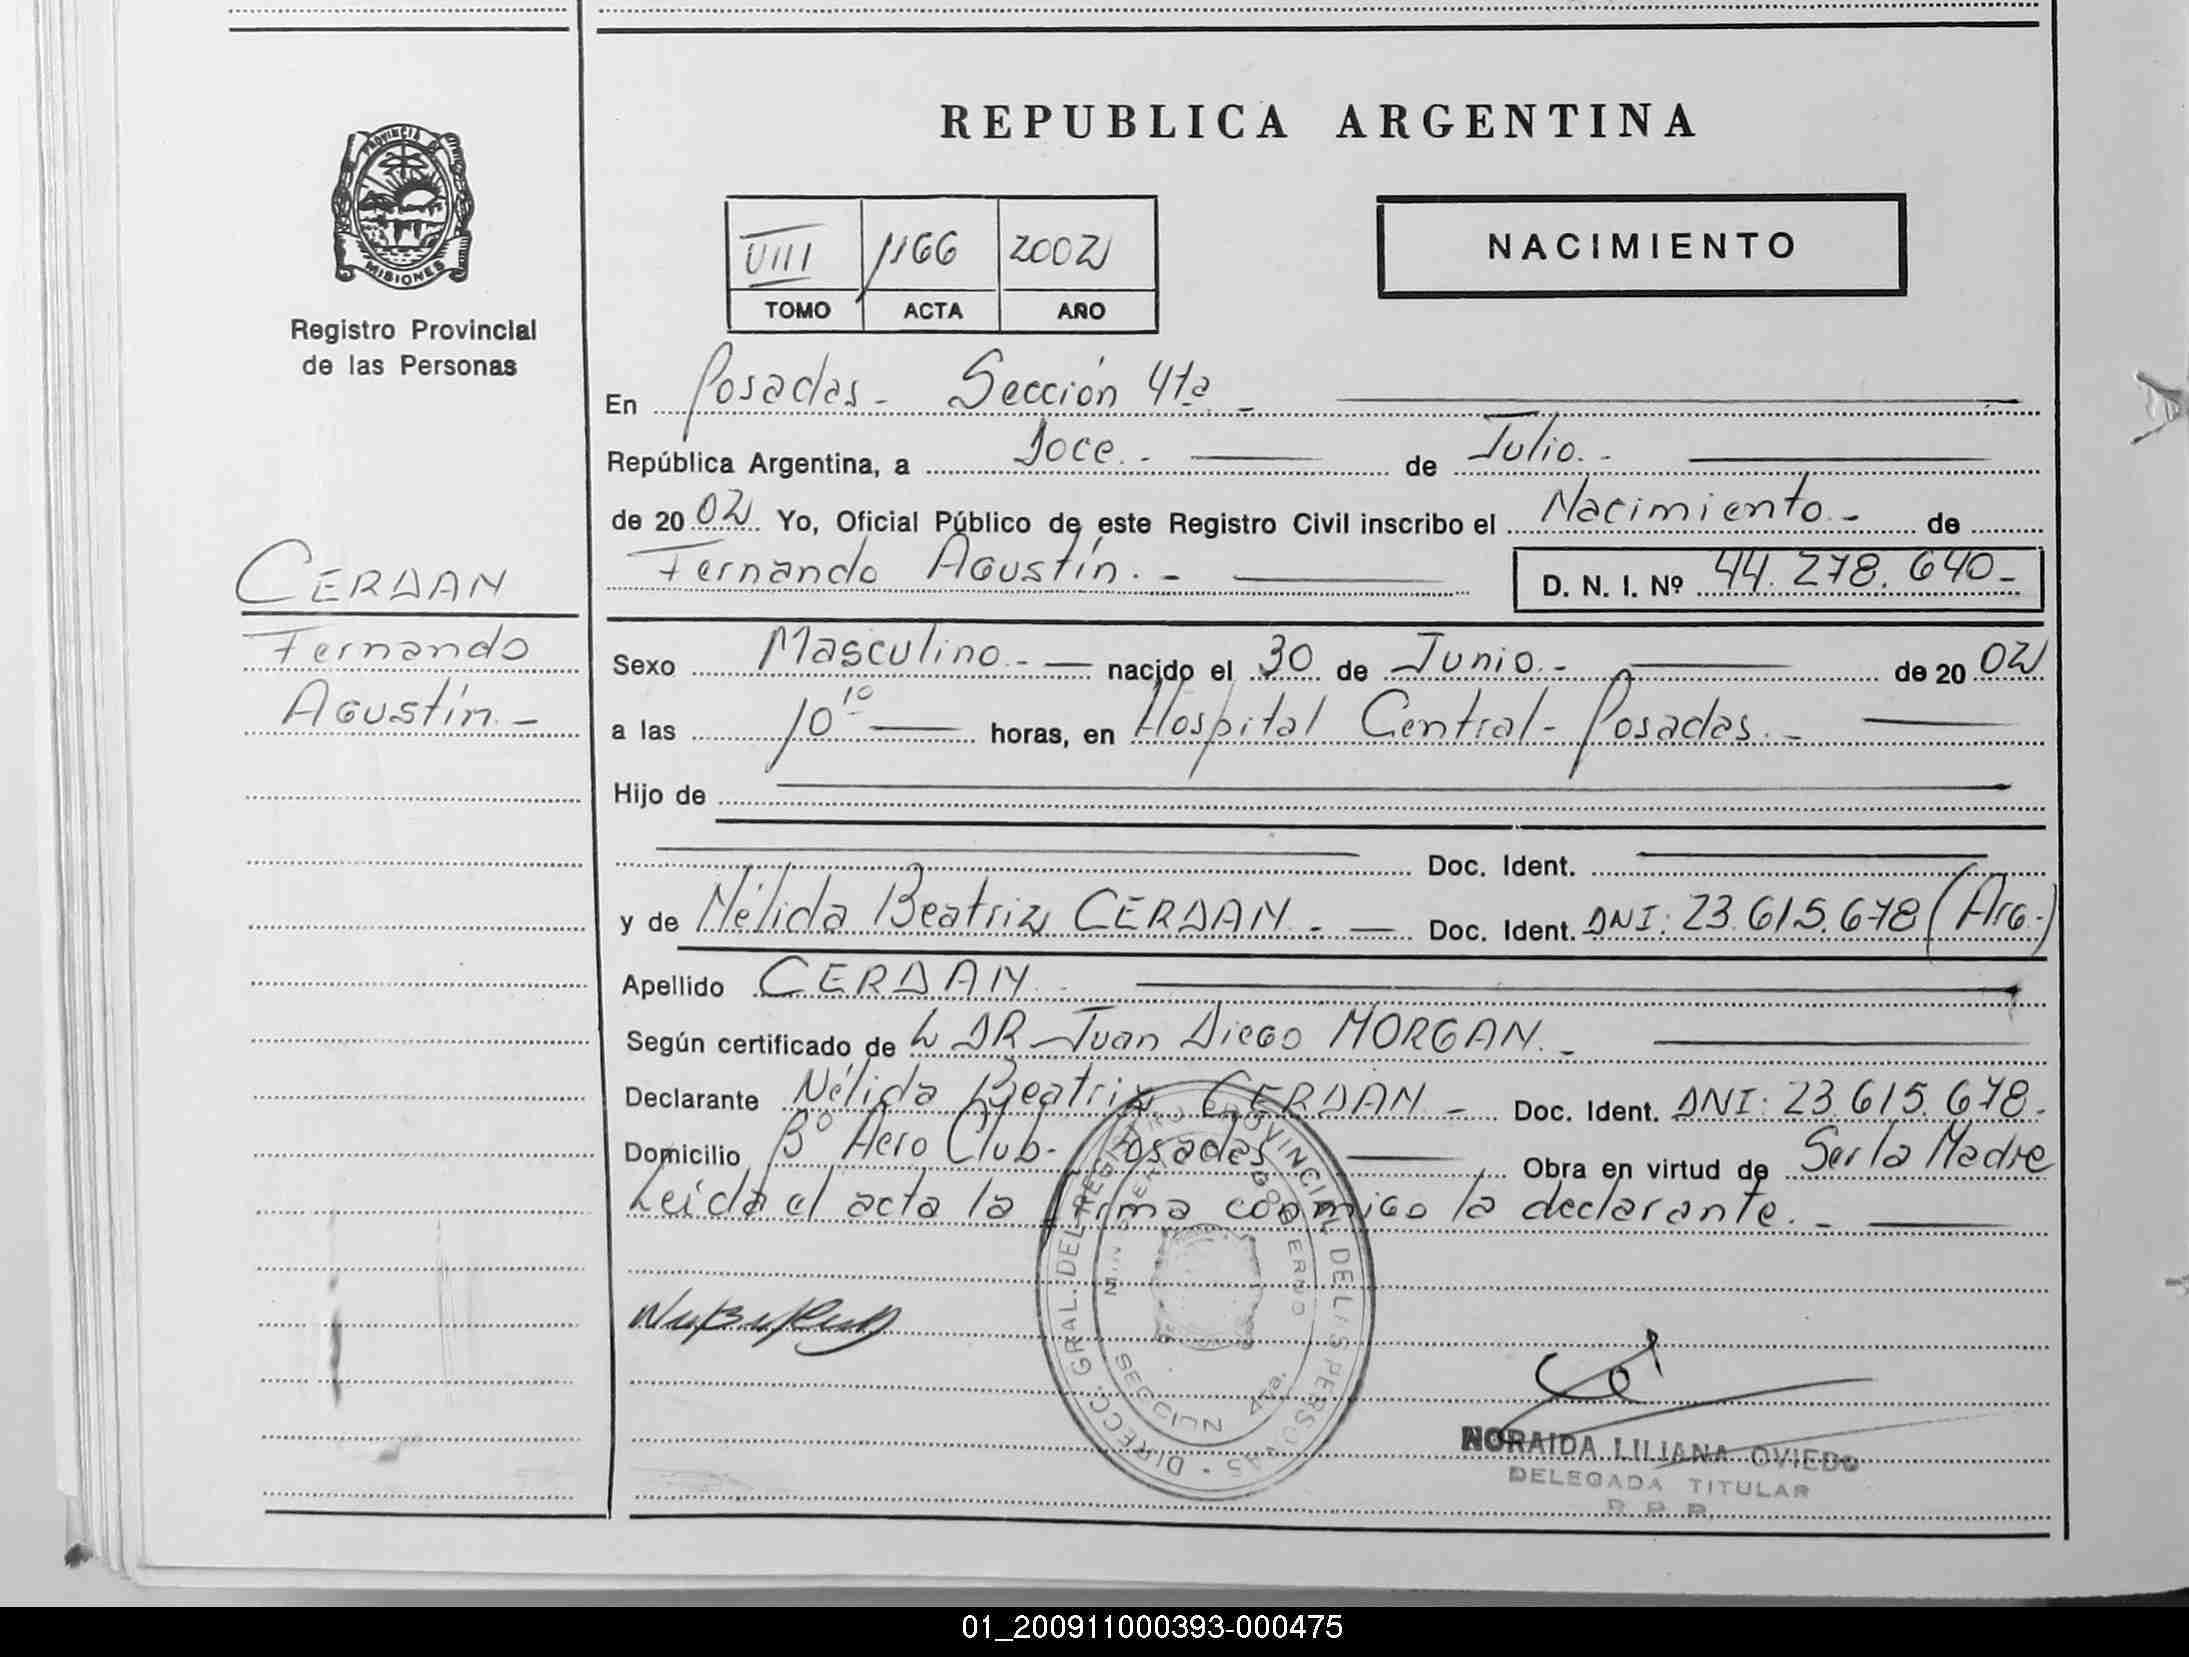 REPUBLICA ARGENTINA
PROVINCIA DE
MISIONES
Registro Provincial
de las Personas
VIII 1166 2002
TOMO ACTA AÑO
NACIMIENTO
En Posadas - Sección 4ta -
República Argentina, a Doce.- de Julio.-
de 20 02 Yo, Oficial Público de este Registro Civil inscribo el Nacimiento - de
Fernando Agustín. - D. N. I. Nº 44.278.640-
CERDAN
Fernando
Agustín. -
Sexo Masculino.- nacido el 30 de Junio.- de 20 02
a las 10 10 horas, en Hospital Central - Posadas. -
Hijo de
Doc. Ident.
y de Nélida Beatriz CERDAN. - Doc. Ident. DNI: 23.615.678 (Arg.)
Apellido CERDAN
Según certificado de DR Juan Diego MORGAN. -
Declarante Nélida Beatriz CERDAN - Doc. Ident. DNI: 23.615.678.
Domicilio Bº Aero Club - Posadas Obra en virtud de Ser la Madre
Leída el acta la firma conmigo la declarante. -
DIRECC. GRAL. DEL REGISTRO PROVINCIAL DE LAS PERSONAS
GOBIERNO
SECCION 4ta.
NORAIDA LILIANA OVIEDO
DELEGADA TITULAR
R. P. P.
01_200911000393-000475